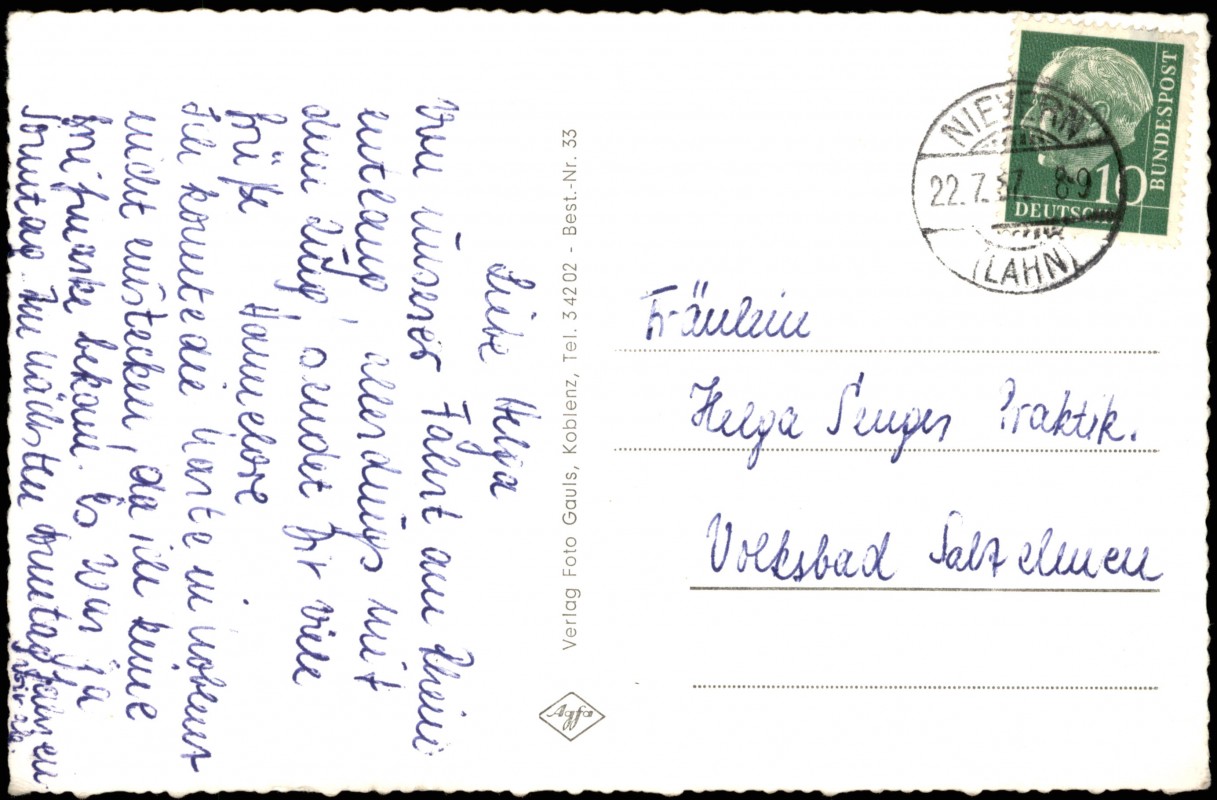 Liebe Helga
Von unserer Fahrt am Rhein
entlang, allerdings mit
dem Zug, sendet Dir viele
Grüße Hannelore
Ich konnte die Karte in Koblenz
nicht einstecken, da ich keine
Briefmarke bekam. Es war ja
Sonntag. Am nächsten Sonntag fahren
wir
Verlag Foto Gauls, Koblenz, Tel. 34202 - Best.-Nr. 33
Agfa
DEUTSCHE
BUNDESPOST
10
NIEVERN
22.7.57. 8-9
(LAHN)
Fräulein
Helga Senger Praktik.
Volksbad Salzelmen